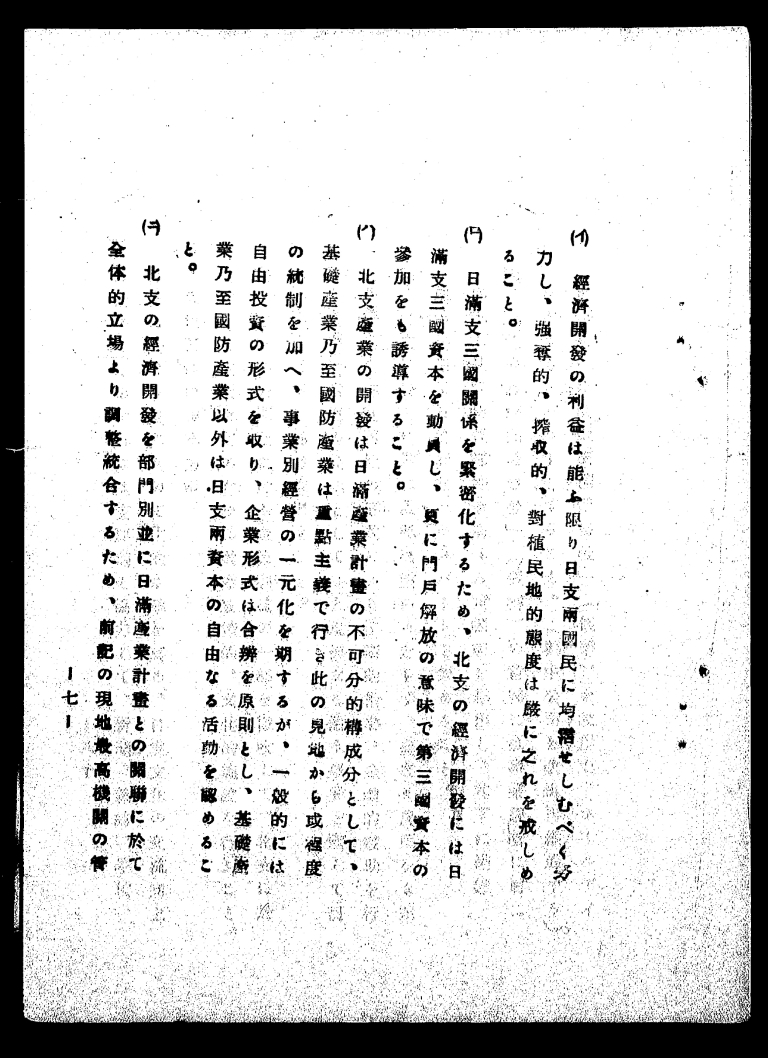 (イ) 經濟開發の利益は能ふ限り日支兩國民に均霑せしむべく努
力し、強奪的、搾取的、對植民地的態度は嚴に之れを戒しめ
ること。
(ロ) 日滿支三國關係を緊密化するため、北支の經濟開發には日
滿支三國資本を動員し、更に門戸解放の意味で第三國資本の
參加をも誘導すること。
(ハ) 北支產業の開發は日滿產業計畫の不可分的構成分として、
基礎產業乃至國防產業は重點主義で行き此の見地から或程度
の統制を加へ、事業別經營の一元化を期するが、一般的には
自由投資の形式を取り、企業形式は合辨を原則とし、基礎產
業乃至國防產業以外は日支兩資本の自由なる活動を認めるこ
と。
(ニ) 北支の經濟開發を部門別並に日滿產業計畫との關聯に於て
全体的立場より調整統合するため、前記の現地最高機關の管
ー七ー